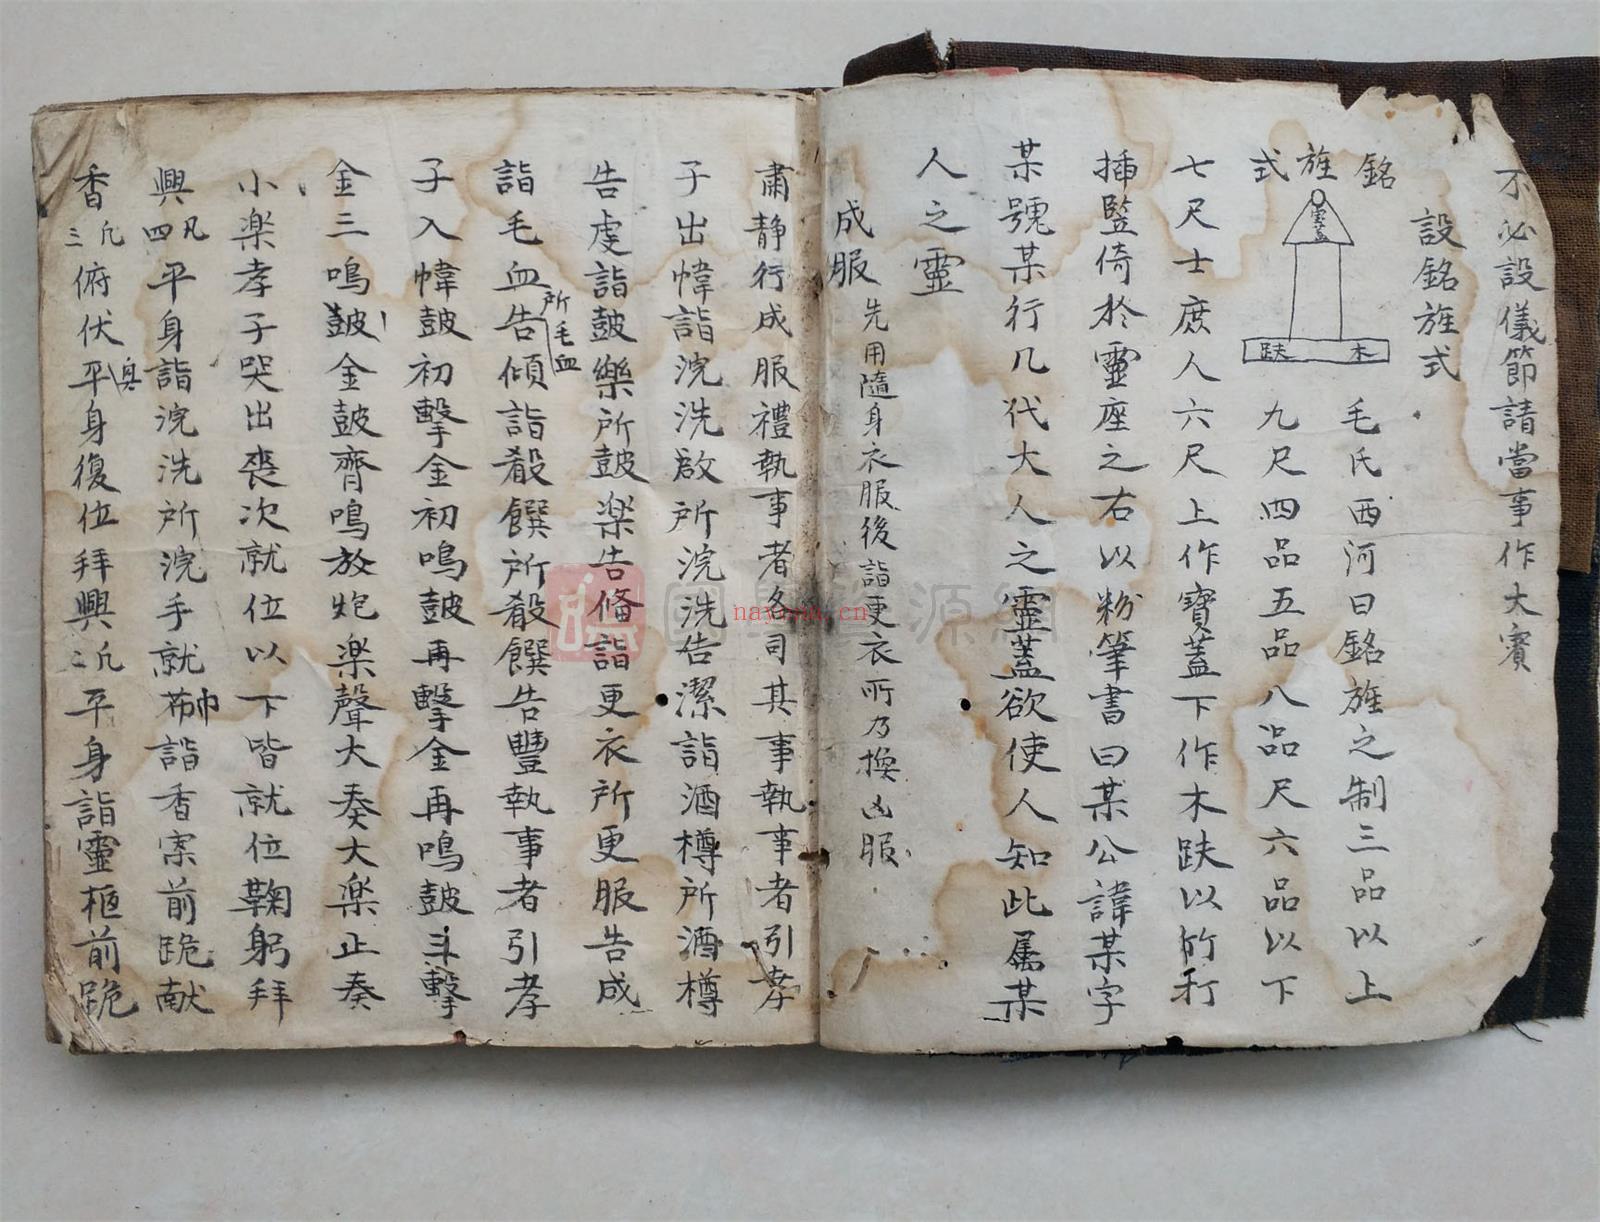 不必設儀節請當事作大賓
設銘旌式
銘旌式
靈蓋
木趺
毛氏西河曰銘旌之制三品以上
九尺四品五品八品尺六品以下
七尺士庶人六尺上作寶蓋下作木趺以竹打
插竪倚於靈座之右以粉筆書曰某公諱某字
某號某行几代大人之靈蓋欲使人知此属某
人之靈
成服先用隨身衣服後詣更衣所乃換凶服
肅静行成服禮執事者各司其事執事者引孝
子出幃詣浣洗啟所浣洗告潔詣酒樽所酒樽
告虔詣鼓樂所鼓楽告脩詣更衣所更服告成
詣毛血所毛血告傾詣殽饌所殽饌告豐執事者引孝
子入幃鼓初擊金初鳴鼓再擊金再鳴鼓三擊
金三鳴鼓金鼓齊鳴放炮楽聲大奏大楽止奏
小楽孝子哭出喪次就位以下皆就位鞠躬拜
興凡四平身詣浣洗所浣手就巾詣香案前跪献
香凡三俯伏興平身復位拜興凡二平身詣靈柩前跪
國學資源網
nayona.cn